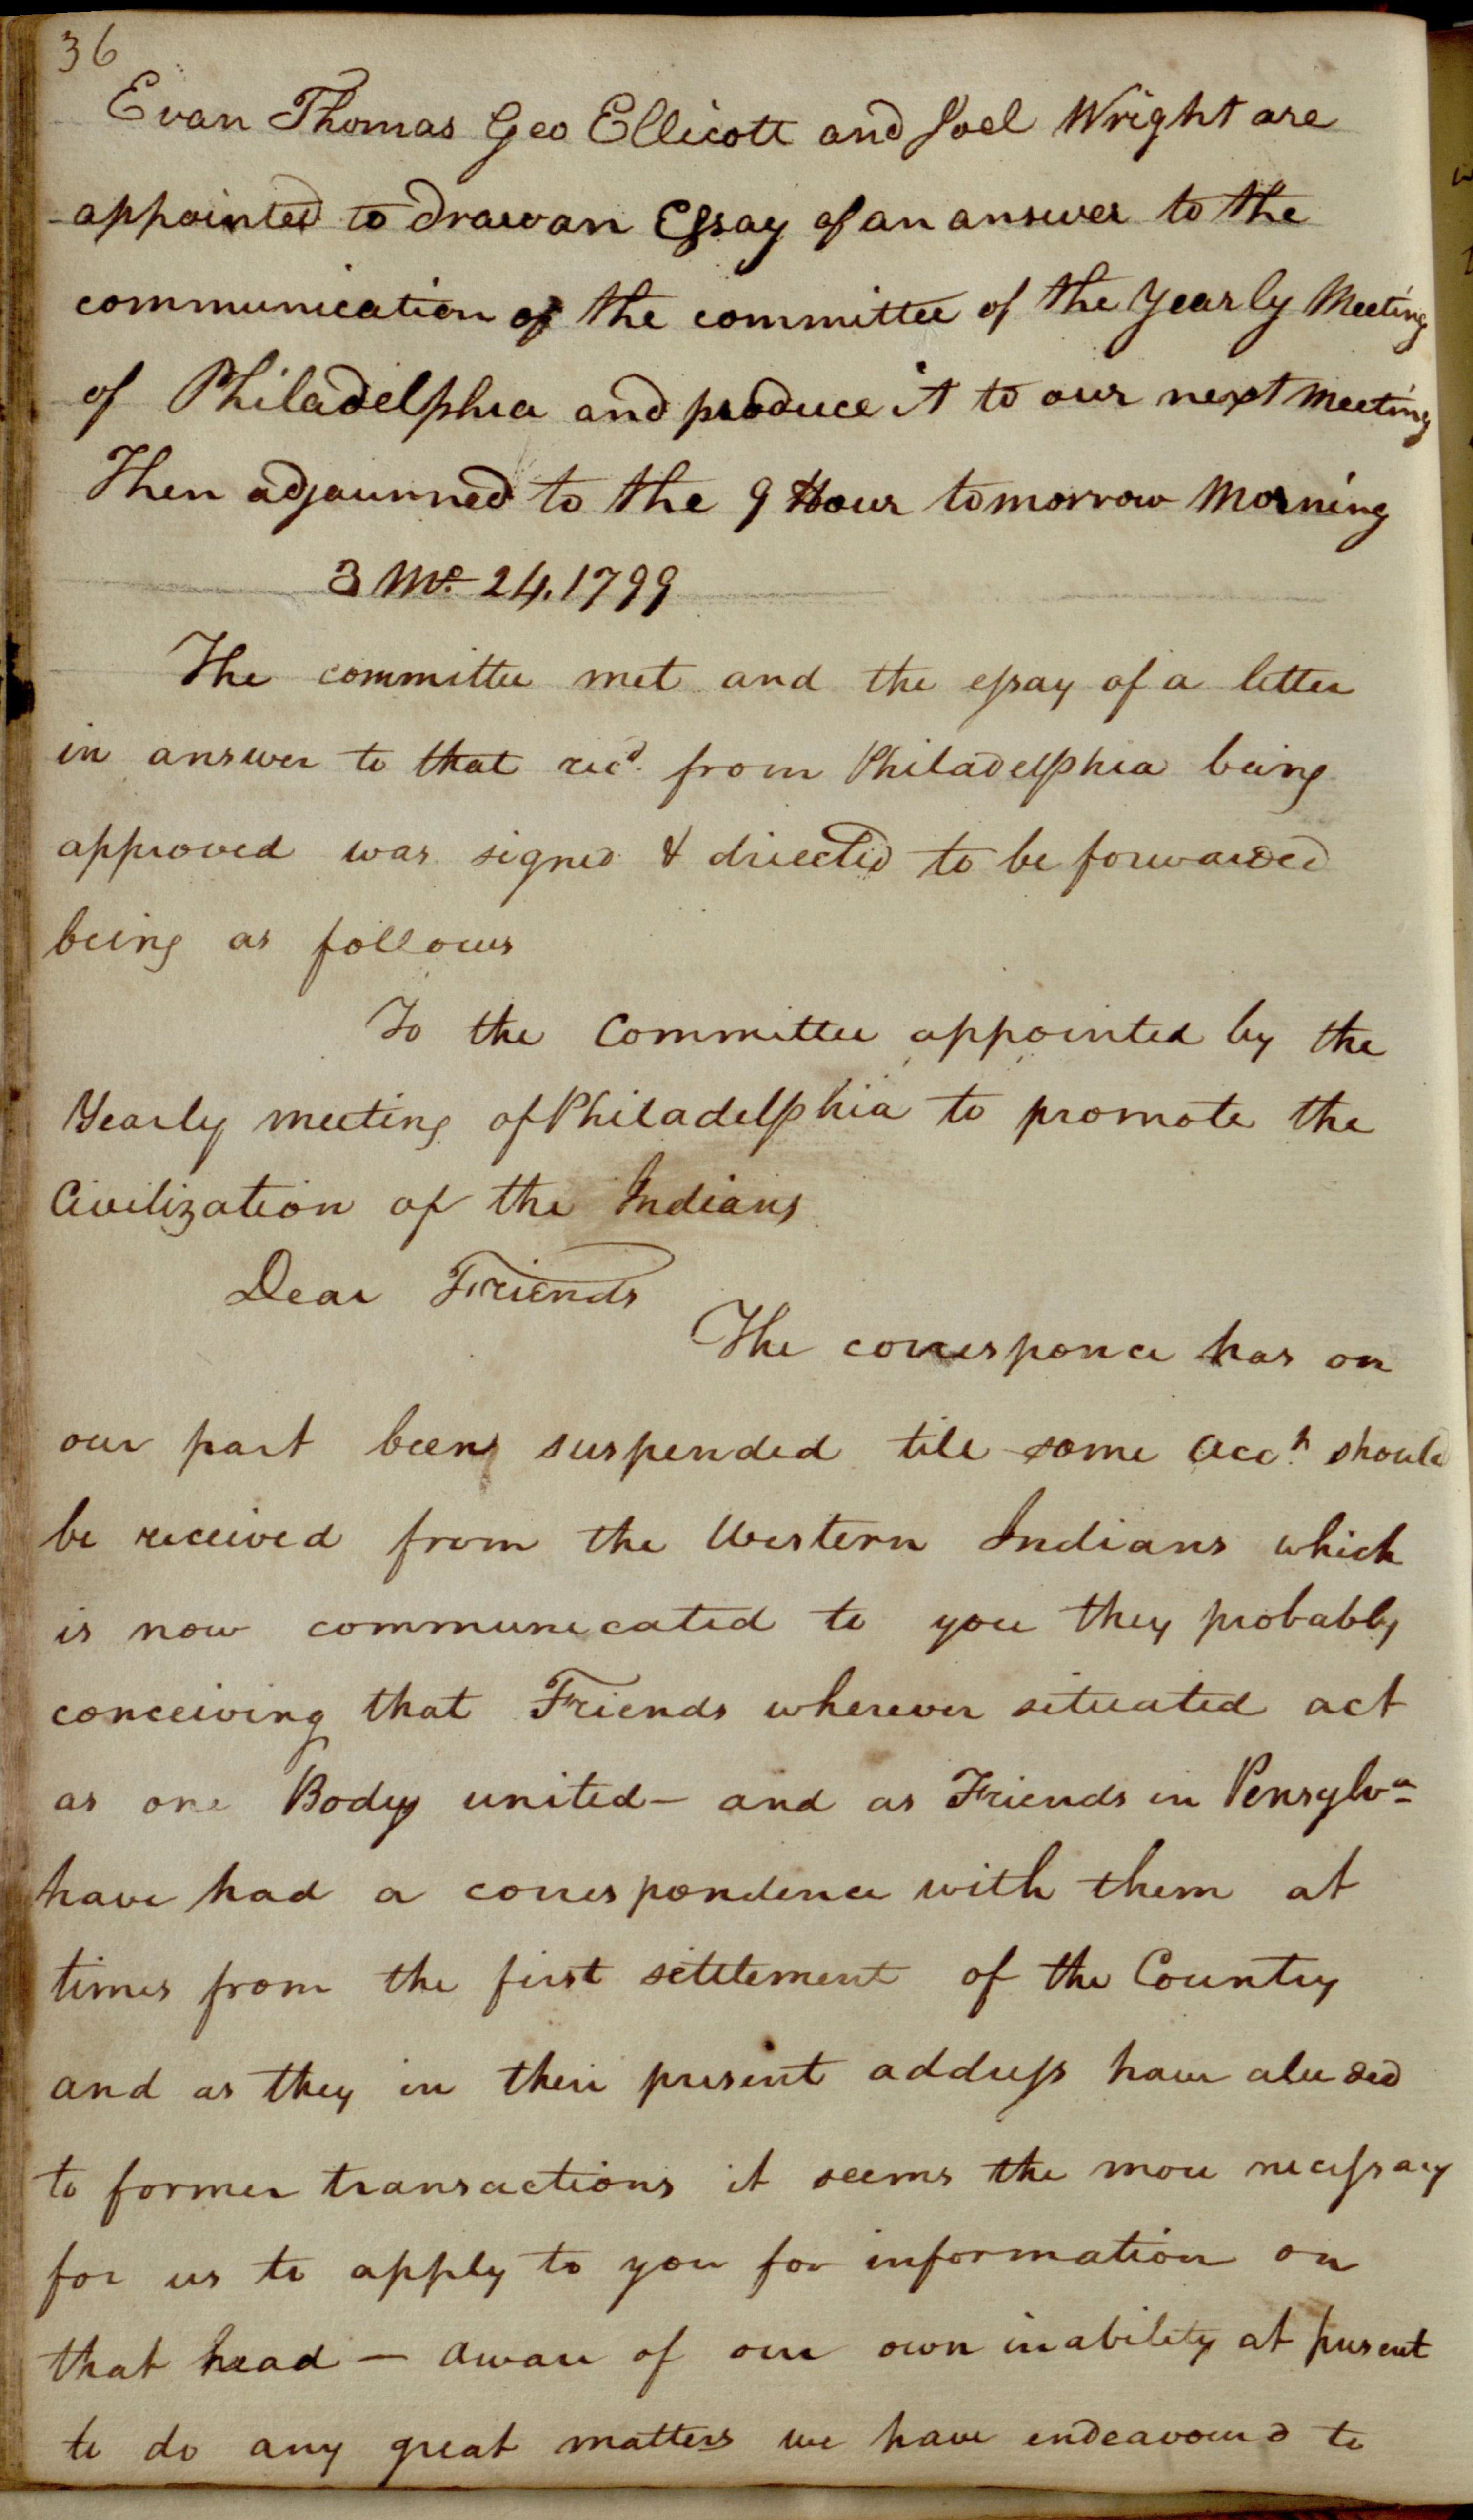 36
Evan Thomas Geo Ellicott and Joel Wright are
appointed to draw an Essay of an answer to the
communication of the committee of the Yearly Meeting
of Philadelphia and produce it to our next Meeting
Then adjourned to the 9 Hour tomorrow Morning
3 Mo. 24. 1799
The committee met and the essay of a letter
in answer to that recd. from Philadelphia being
approved was signed & directed to be forwarded
being as follows
To the Committee appointed by the
Yearly meeting of Philadelphia to promote the
Civilization of the Indians
Dear Friends
The corresponce has on
our part been suspended till some acct. should
be received from the Western Indians which
is now communicated to you they probably
conceiving that Friends wherever situated act
as one Body united — and as Friends in Pensylva
have had a correspondence with them at
times from the first settlement of the Country
and as they in their present address have aluded
to former transactions it seems the more necessary
for us to apply to you for information on
that head — aware of our own inability at present
to do any great matters we have endeavoured to